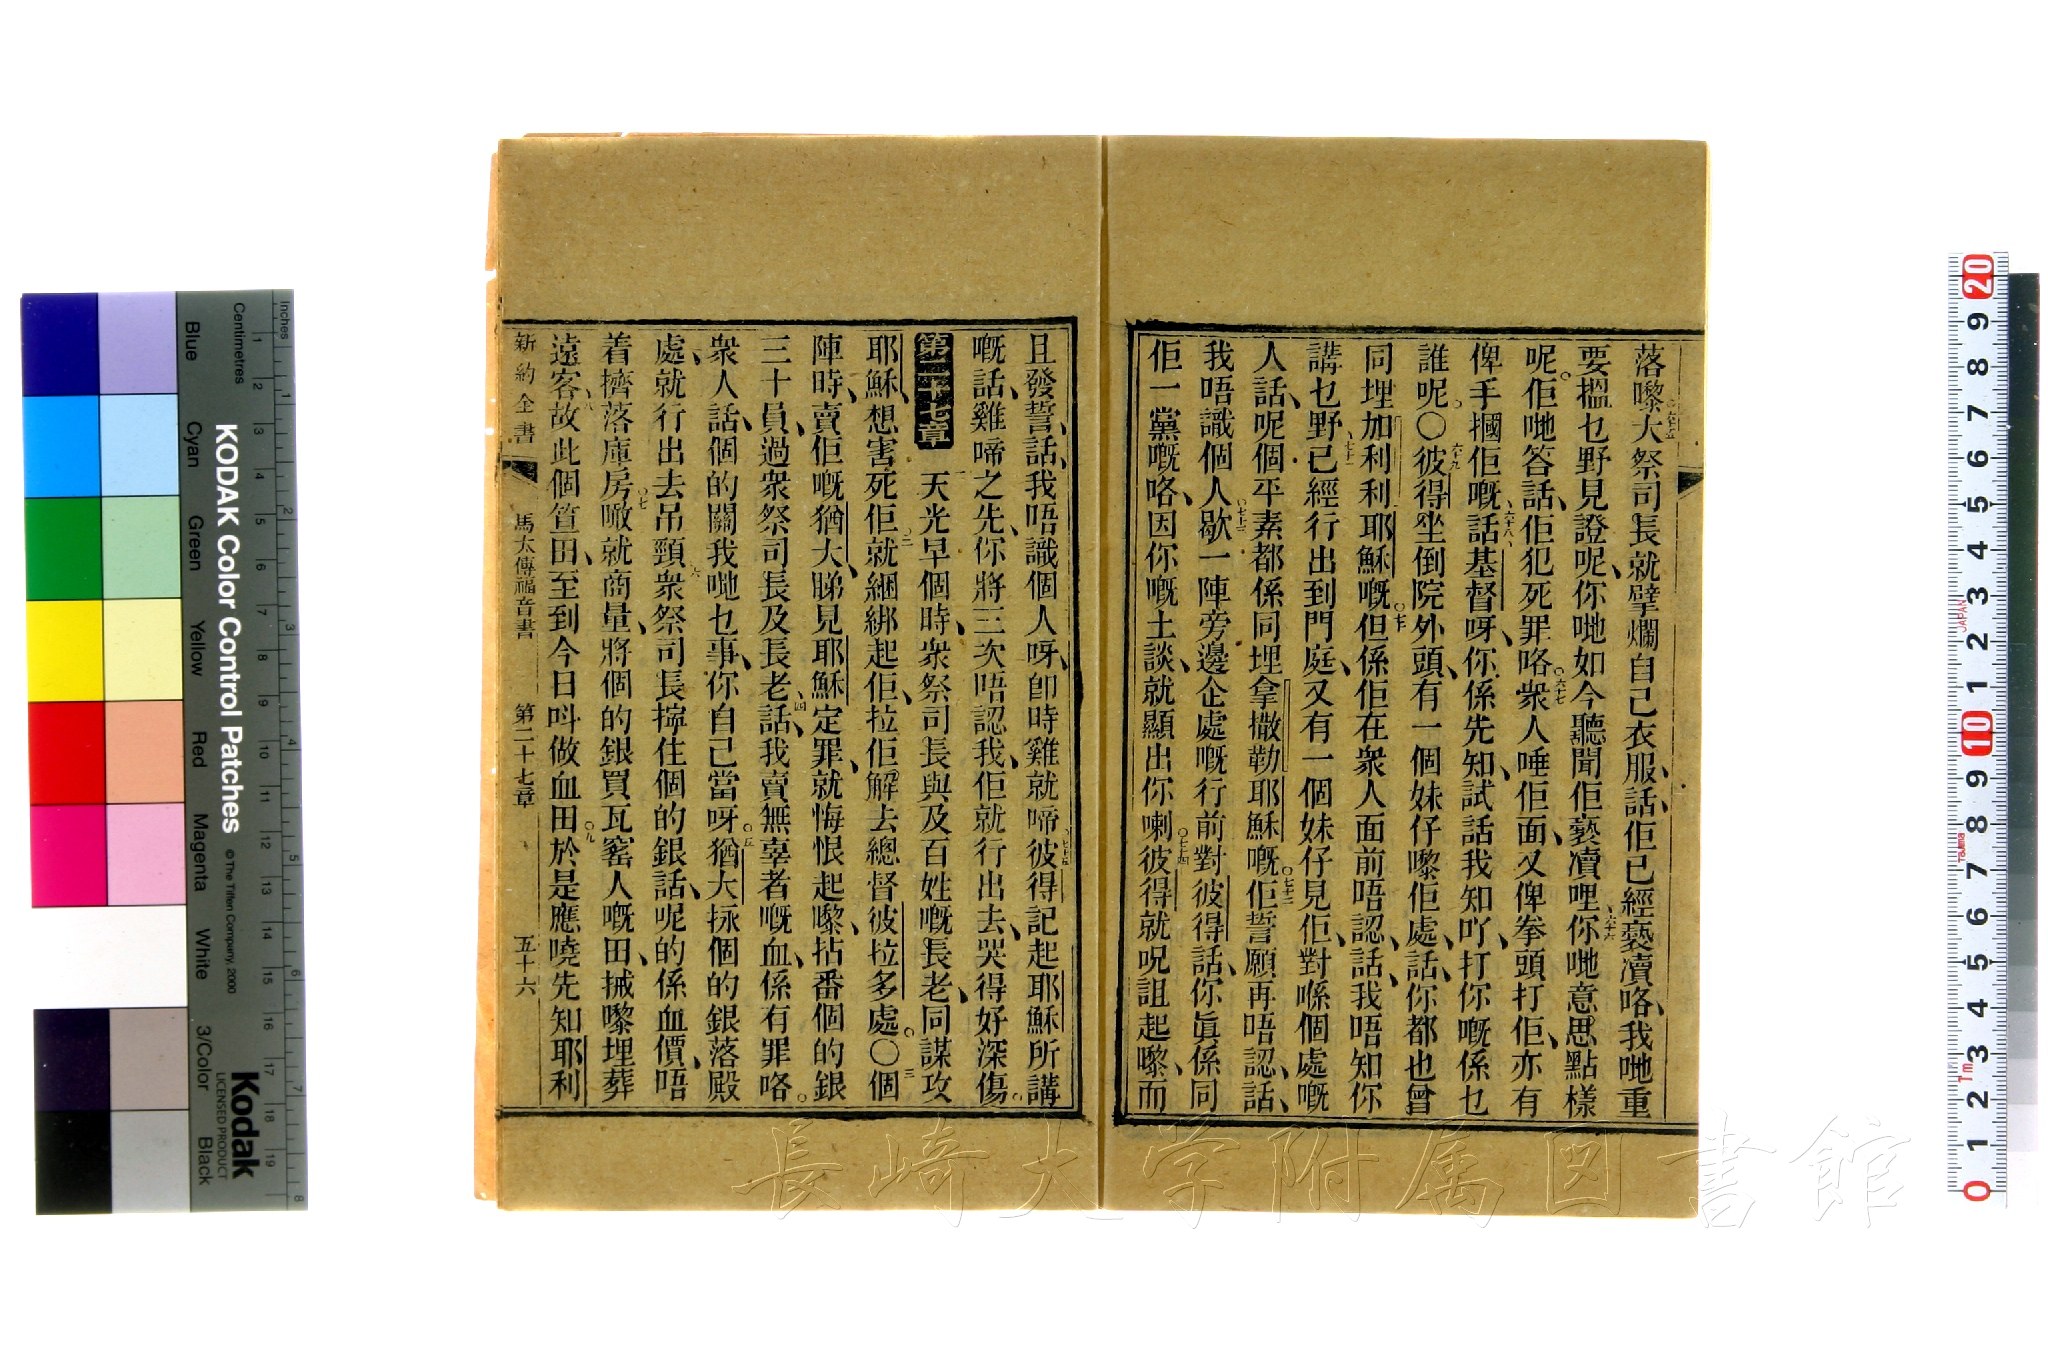 落嚟大祭司長就擘爛自己衣服、話、佢已經褻瀆咯、我哋重
要搵乜野見證呢、你哋如今聽聞佢褻瀆哩、六十六你哋意思點樣
呢。佢哋答話、佢犯死罪咯、○六七衆人唾佢面、又俾拳頭打佢、亦有
俾手摑佢嘅、六十八話、基督呀、你係先知、試話我知吖、打你嘅係乜
誰呢。○六十九彼得坐倒院外頭、有一個妹仔嚟佢處、話、你都也曾
同埋加利利耶穌嘅、○七十但係佢在衆人面前唔認、話、我唔知你
講乜野、七十一已經行出到門庭、又有一個妹仔見佢、對喺個處嘅
人話、呢個平素都係同埋拿撒勒耶穌嘅、○七十二佢誓願再唔認、話、
我唔識個人、○七十三歇一陣旁邊企處嘅行前對彼得話、你眞係同
佢一黨嘅咯、因你嘅土談、就顯出你喇、○七十四彼得就呪詛起嚟、而
且發誓、話、我唔識個人呀、卽時雞就啼、○七十五彼得記起耶穌所講
嘅話、雞啼之先、你將三次唔認我、佢就行出去、哭得好深傷。
第二十七章 一天光早個時、衆祭司長與及百姓嘅長老、同謀攻
耶穌、想害死佢、○二就綑綁起佢、拉佢解去總督彼拉多處。○三個
陣時、賣佢嘅猶大、睇見耶穌定罪、就悔恨起嚟、拈番個的銀
三十員、過衆祭司長及長老、四話、我賣無辜者嘅血、係有罪咯。
衆人話、個的關我哋乜事、你自己當呀、○五猶大掭個的銀落殿
處、就行出去吊頸、六衆祭司長擰住個的銀、話、呢的係血價、唔
着擠落庫房噉、○七就商量、將個的銀買瓦窰人嘅田、搣嚟埋葬
遠客、八故此個笪田、至到今日呌做血田、○九於是應曉先知耶利
新約全書 馬太傳福音書 第二十七章 五十六
長崎大学附属図書館
KODAK Color Control Patches
© The Tiffen Company, 2000
Kodak
LICENSED PRODUCT
Inches
Centimetres
Blue
Cyan
Green
Yellow
Red
Magenta
White
3/Color
Black
1 2 3 4 5 6 7 8
1 2 3 4 5 6 7 8 9 10 11 12 13 14 15 16 17 18 19
20 9 8 7 6 5 4 3 2 1 10 9 8 7 6 5 4 3 2 1 0
JAPAN
Tajima